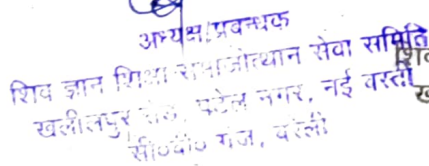 अध्यक्ष/प्रबन्धक
शिव ज्ञान शिक्षा समाजोत्थान सेवा समिति
खलीलपुर रोड, पटेल नगर, नई बस्ती
सी०बी० गंज, बरेली